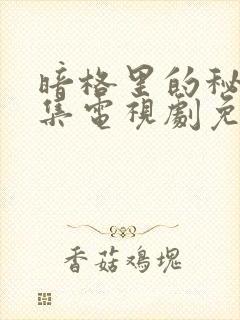 暗格里的秘
集電視劇免
香菇鸡塊